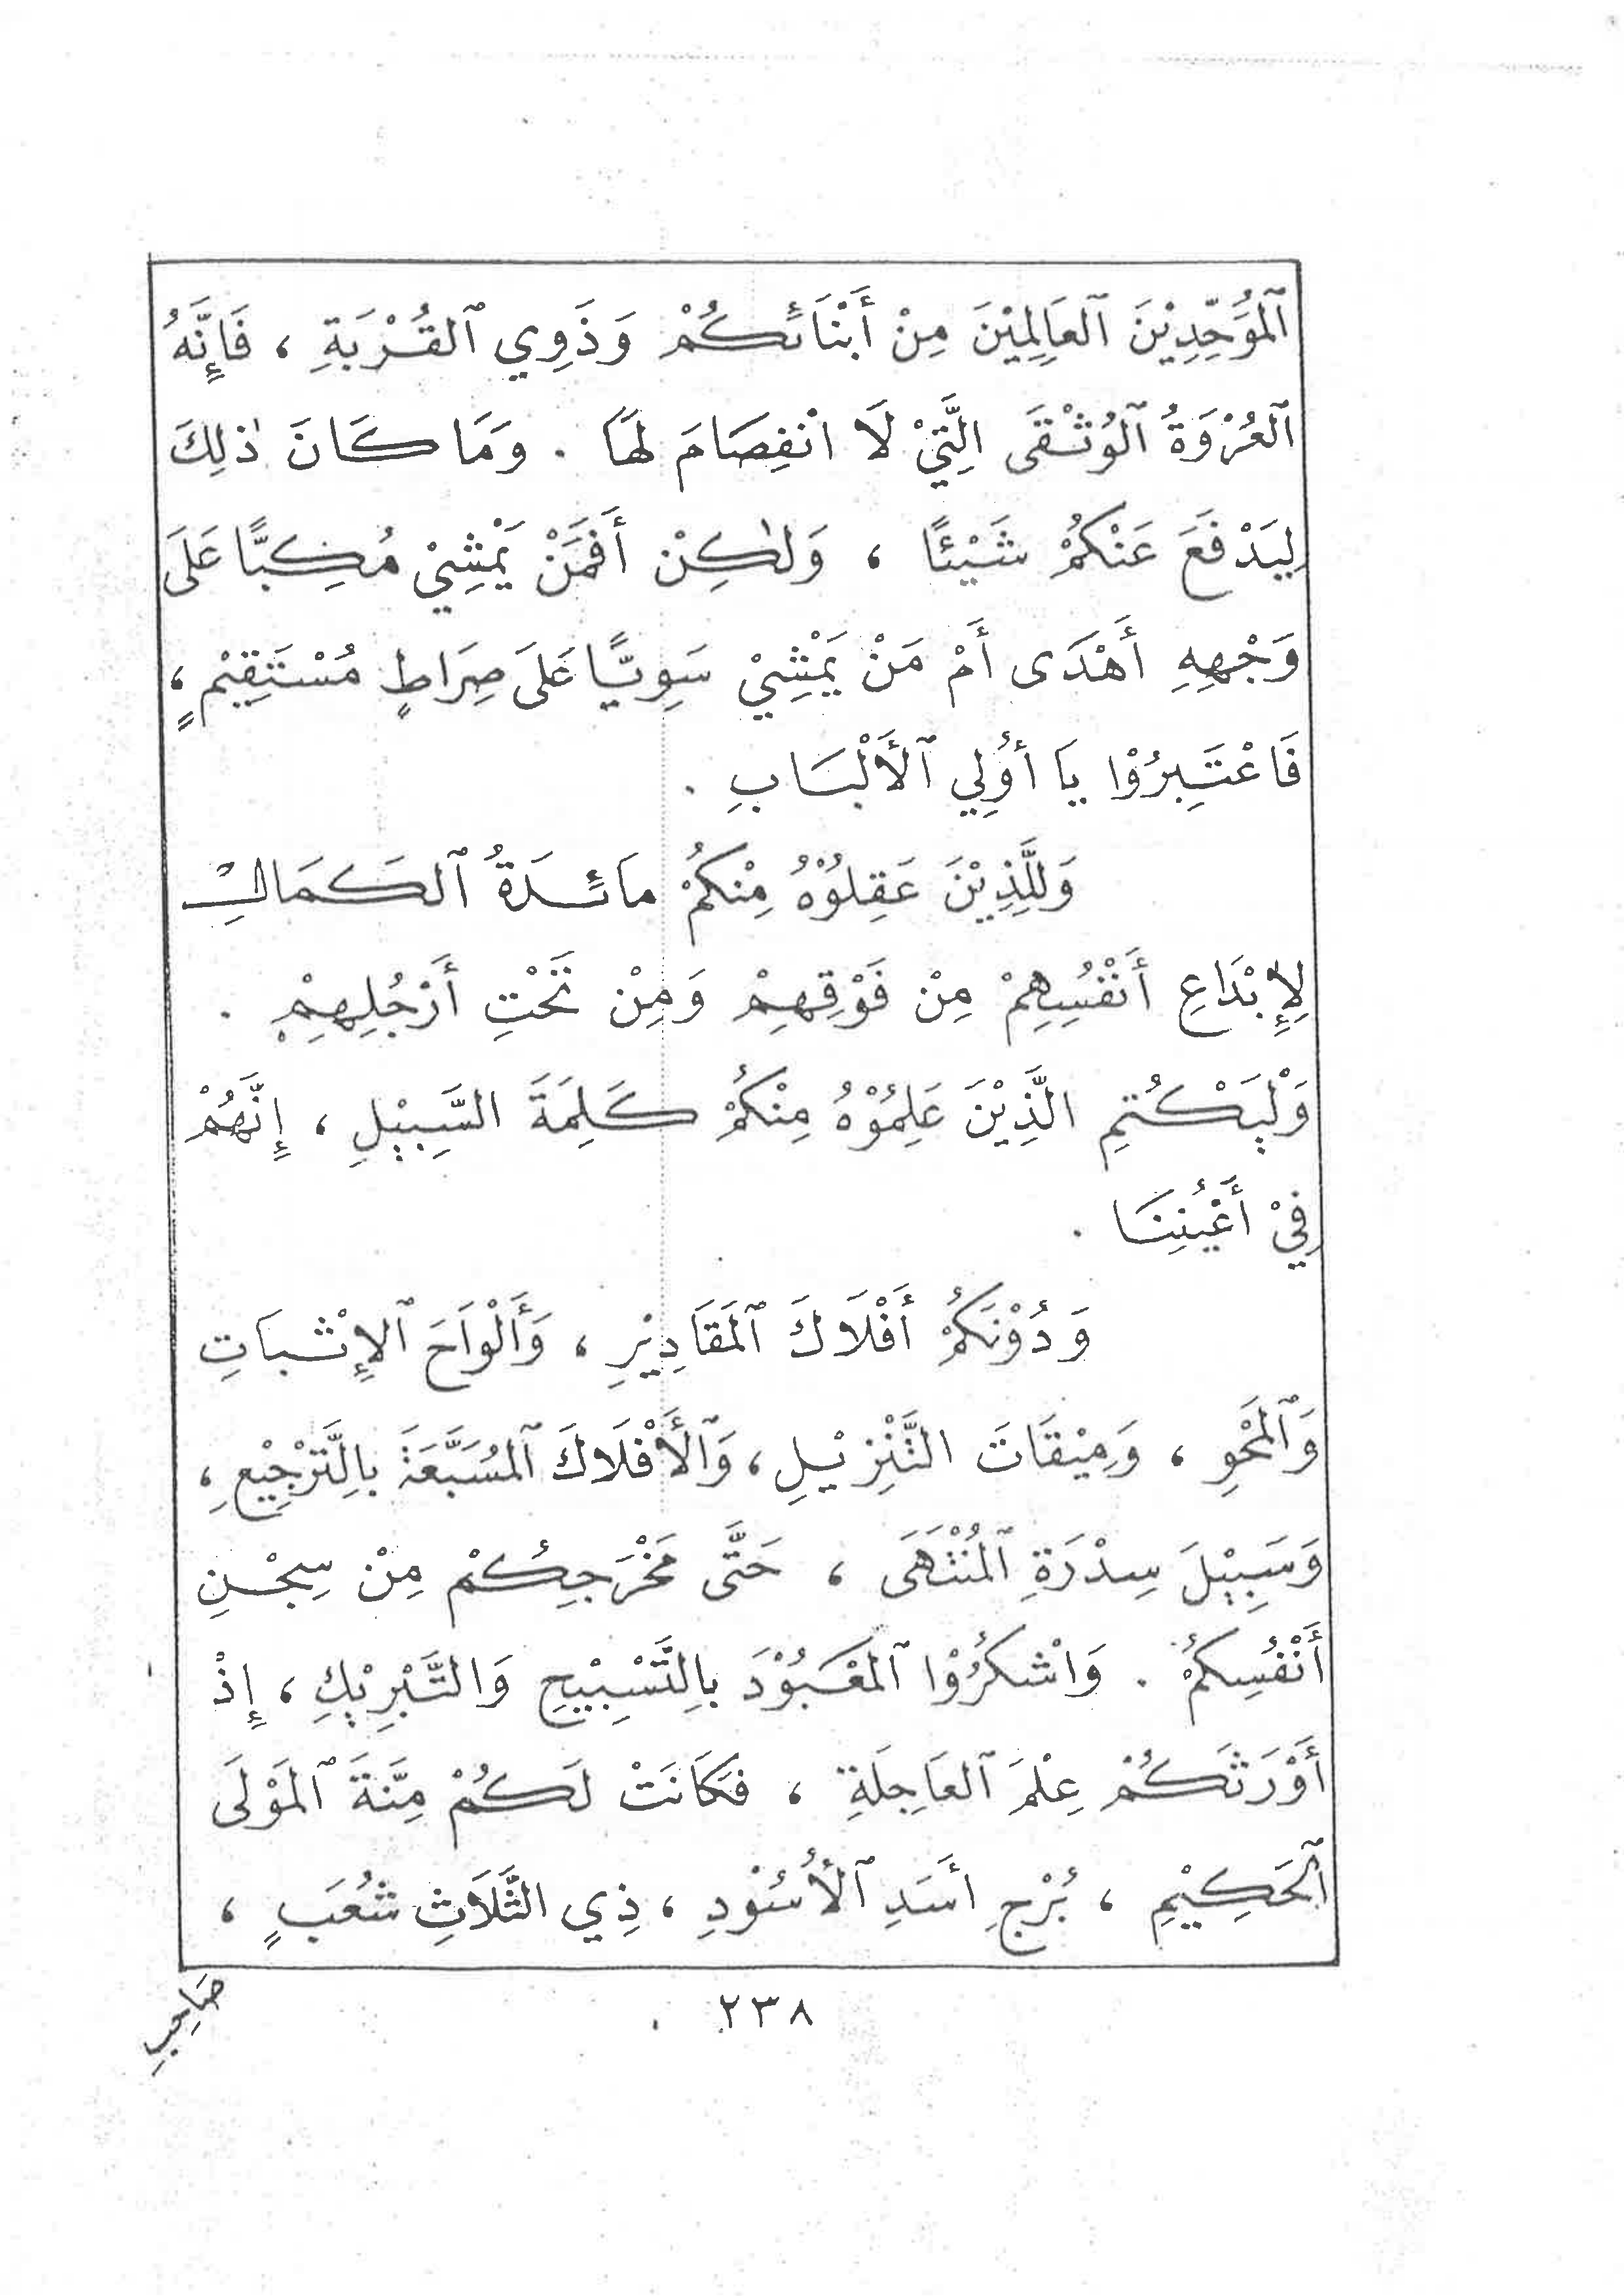 ٱلمُوَحِّدِيْنَ ٱلعَالِمِيْنَ مِنْ أَبْنَائِكُمْ وَذَوِي ٱلقُرْبَةِ ، فَإِنَّهُ
ٱلعُرْوَةُ ٱلوُثْقَى الَّتِيْ لَا انْفِصَامَ لَهَا . وَمَا كَانَ ذٰلِكَ
لِيَدْفَعَ عَنْكُمْ شَيْئًا ، وَلٰكِنْ أَفَمَنْ يَمْشِيْ مُكِبًّا عَلَى
وَجْهِهِ أَهْدَى أَمْ مَنْ يَمْشِيْ سَوِيًّا عَلَى صِرَاطٍ مُسْتَقِيْمٍ ،
فَاعْتَبِرُوْا يَا أُوْلِي ٱلأَلْبَابِ .
وَلِلَّذِيْنَ عَقِلُوْهُ مِنْكُمْ مَائِدَةُ ٱلكَمَالِ
لِإِبْدَاعِ أَنْفُسِهِمْ مِنْ فَوْقِهِمْ وَمِنْ تَحْتِ أَرْجُلِهِمْ .
وَلْيَكْتُمِ الَّذِيْنَ عَلِمُوْهُ مِنْكُمْ كَلِمَةَ السَّبِيْلِ ، إِنَّهُمْ
فِيْ أَعْيُنِنَا .
وَدُوْنَكُمْ أَفْلَاكَ ٱلمَقَادِيْرِ ، وَأَلْوَاحَ ٱلإِثْبَاتِ
وَٱلمَحْوِ ، وَمِيْقَاتَ التَّنْزِيْلِ ، وَٱلأَفْلَاكَ ٱلمُسَبَّعَةَ بِالتَّرْجِيْعِ ،
وَسَبِيْلَ سِدْرَةِ ٱلمُنْتَهَى ، حَتَّى مَخْرَجِكُمْ مِنْ سِجْنِ
أَنْفُسِكُمْ . وَاشْكُرُوْا ٱلمَعْبُوْدَ بِالتَّسْبِيْحِ وَالتَّبْرِيْكِ ، إِذْ
أَوْرَثَكُمْ عِلْمَ ٱلعَاجِلَةِ ، فَكَانَتْ لَكُمْ مِنَّةَ ٱلمَوْلَى
ٱلحَكِيْمِ ، بُرْجِ أَسَدِ ٱلأُسُوْدِ ، ذِي الثَّلَاثِ شُعَبٍ ،
٢٣٨